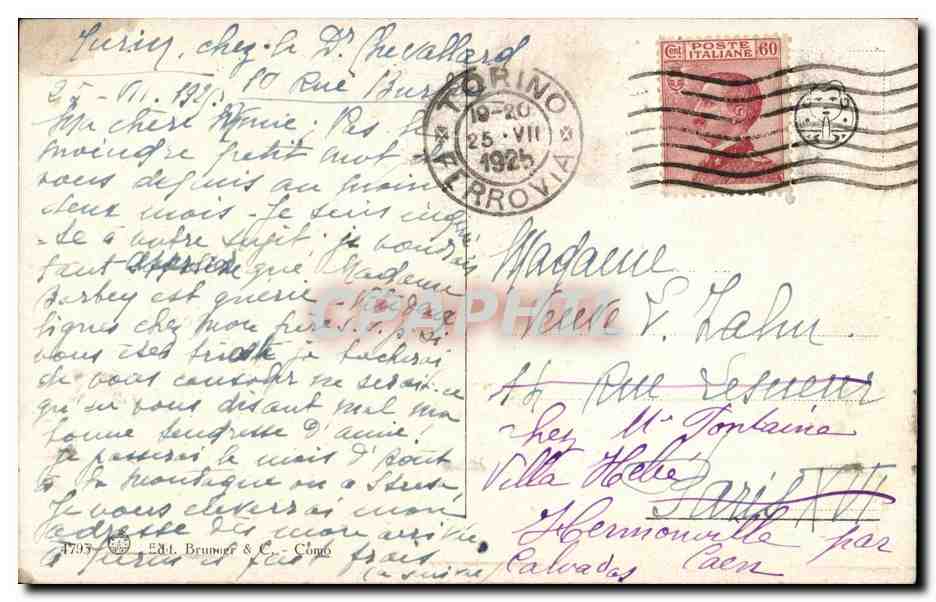 Turin, chez le Dr Chevallard
25-VII. 1925. 10 Rue
Ma chère Mimie. Pas le
moindre petit mot de
vous depuis au moins
deux mois. Je suis inquié
-te à votre sujet. je voudrais
tant que Madame
Barbey est guérie.
lignes chez mon père s.
vous êtes triste je tacherai
de vous consoler ne serait-ce
qu'en vous disant mal ma
bonne tendresse d'amie!
Je passerai le mois d'août
à la montagne ou à Stresa
Je vous enverrai mon
adresse dès mon arrivée
à Turin il fait frais
(à suivre)
4795 Edit. Brunner & C. - Como
TORINO
19-20
25 · VII
1925
FERROVIA
Cent. POSTE ITALIANE 60
CPAPHIL
Madame
Veuve L. Zahn
44 Rue Lesueur
chez Me Fontaine
Villa Hébé
Paris XVI
Hermonville par
Calvados Caen